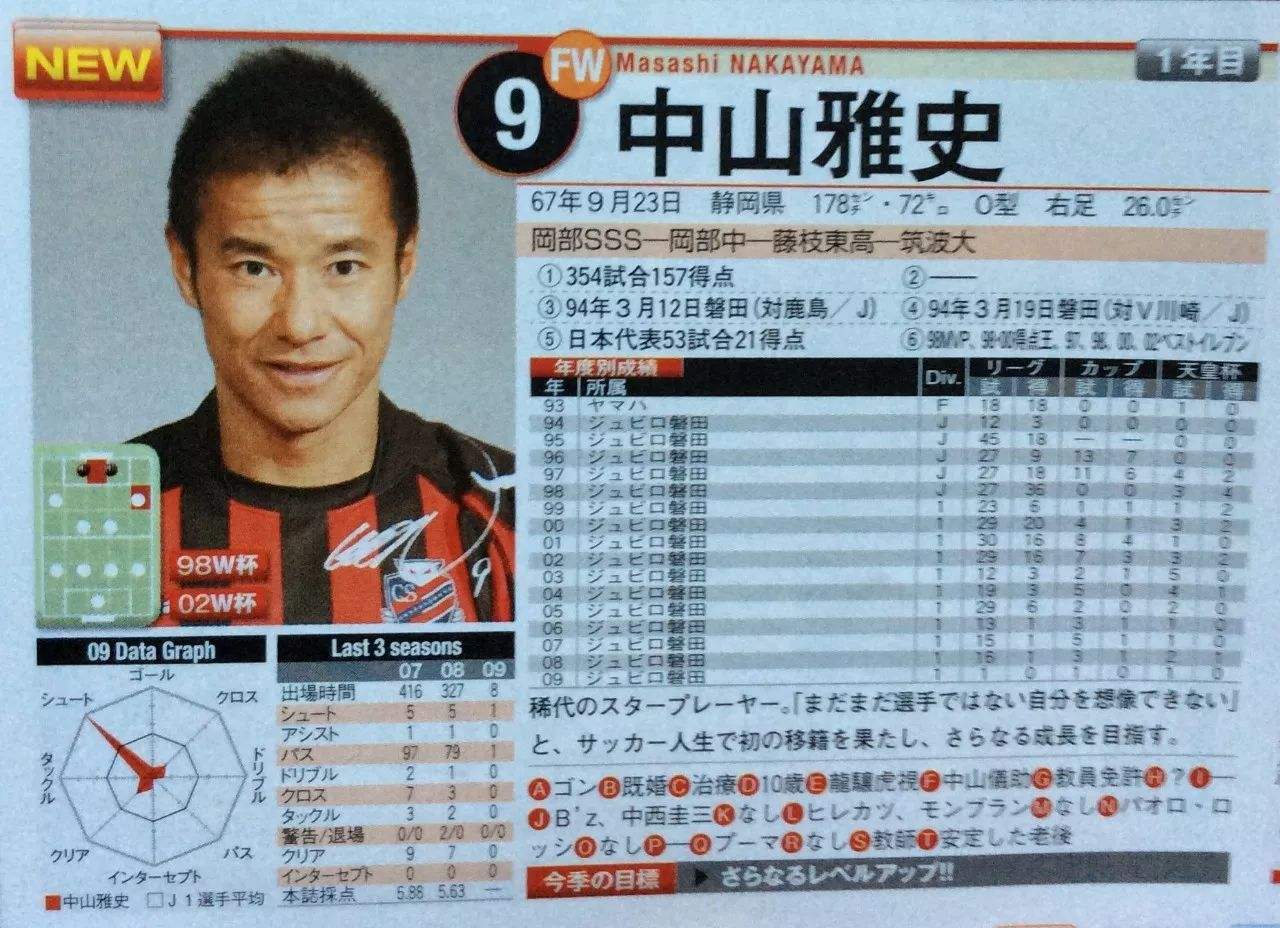 NEW
9
FW
Masashi NAKAYAMA
1年目
中山雅史
67年9月23日 静岡県 178㌢・72㌔ O型 右足 26.0㌢
岡部SSS―岡部中―藤枝東高―筑波大
①354試合157得点 ②――
③94年3月12日磐田(対鹿島/J) ④94年3月19日磐田(対V川崎/J)
⑤日本代表53試合21得点 ⑥98MVP、98・00得点王、97、98、00、02ベストイレブン
年度別成績
年 所属 Div. リーグ カップ 天皇杯
試 得 試 得 試 得
93 ヤマハ F 18 18 0 0 1 0
94 ジュビロ磐田 J 12 3 0 0 0 0
95 ジュビロ磐田 J 45 18 ― ― 0 0
96 ジュビロ磐田 J 27 9 13 7 0 0
97 ジュビロ磐田 J 27 18 11 6 4 2
98 ジュビロ磐田 J 27 36 0 0 3 4
99 ジュビロ磐田 1 23 6 1 1 1 2
00 ジュビロ磐田 1 29 20 4 1 3 2
01 ジュビロ磐田 1 30 16 8 4 1 0
02 ジュビロ磐田 1 29 16 7 3 3 2
03 ジュビロ磐田 1 12 3 2 1 5 0
04 ジュビロ磐田 1 19 3 5 0 4 1
05 ジュビロ磐田 1 29 6 2 0 2 0
06 ジュビロ磐田 1 13 1 3 1 1 0
07 ジュビロ磐田 1 15 1 5 1 0
08 ジュビロ磐田 1 16 1 3 1 2 1
09 ジュビロ磐田 1 1 0 1 0 1 0
98W杯
02W杯
9
CS
09 Data Graph
ゴール
シュート
クロス
タックル
ドリブル
クリア
パス
インターセプト
■中山雅史 □J1選手平均
Last 3 seasons
07 08 09
出場時間 416 327 8
シュート 5 5 1
アシスト 1 1 0
パス 97 79 1
ドリブル 2 1 0
クロス 7 3 0
タックル 3 2 0
警告/退場 0/0 2/0 0/0
クリア 9 7 0
インターセプト 0 0 0
本誌採点 5.88 5.63 ―
稀代のスタープレーヤー。「まだまだ選手ではない自分を想像できない」
と、サッカー人生で初の移籍を果たし、さらなる成長を目指す。
Aゴン B既婚 C治療 D10歳 E龍驤虎視 F中山儀助 G教員免許 H? I―
J B'z、中西圭三 Kなし Lヒレカツ、モンブラン Mなし Nパオロ・ロ
ッシ Oなし P― Qプーマ Rなし S教師 T安定した老後
今季の目標 ▶ さらなるレベルアップ!!